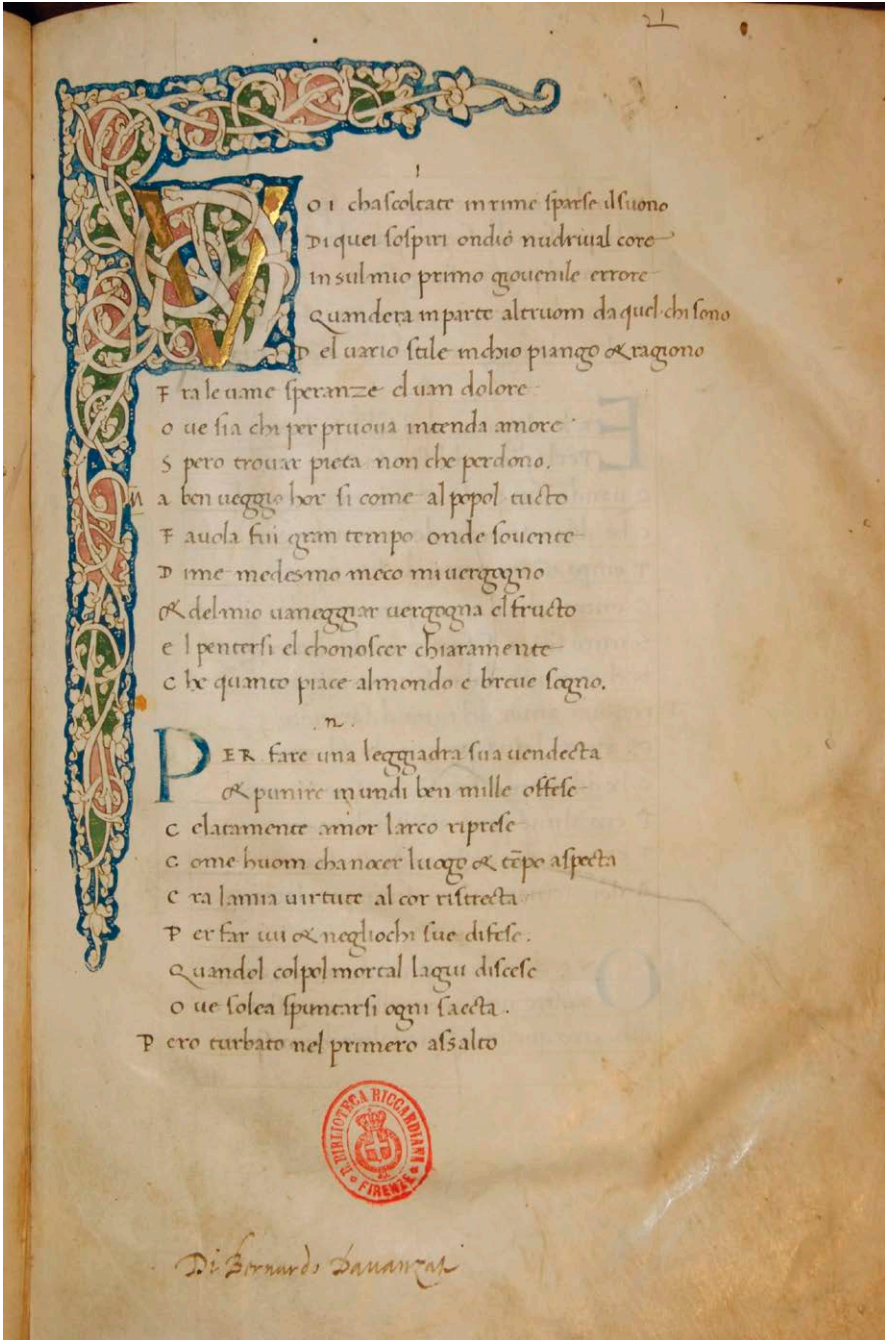 21
1
VOI chascoltate in rime sparse il suono
Di quei sospiri ondiò nudriva l core
in sul mio primo giovenile errore
Quandera in parte altruom da quel chi sono
Del vario stile in chio piango & ragiono
Fra le vane speranze el van dolore
Ove sia chi per pruova intenda amore
Spero trovar pieta non che perdono.
Ma ben veggio hor si come al popol tucto
Favola fui gran tempo onde sovente
Di me medesmo meco mi vergogno
& del mio vaneggiar vergogna el fructo
el pentersi el chonoscer chiaramente
Che quanto piace al mondo e breve sogno.
.n.
PER fare una leggiadra sua vendecta
& punire in un di ben mille offese
Celatamente amor larco riprese
Come huom cha nocer luogo & tēpo aspecta
Era la mia virtute al cor ristrecta
Per far ivi & negliochi sue difese.
Quandol colpol mortal lagiu discese
Ove solea spuntarsi ogni saecta.
Pero turbato nel primero assalto
R. BIBLIOTECA RICCARDIANA
FIRENZE
Di Bernardo Davanzati